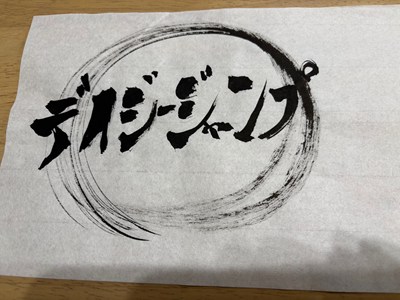 デイジージャンプ